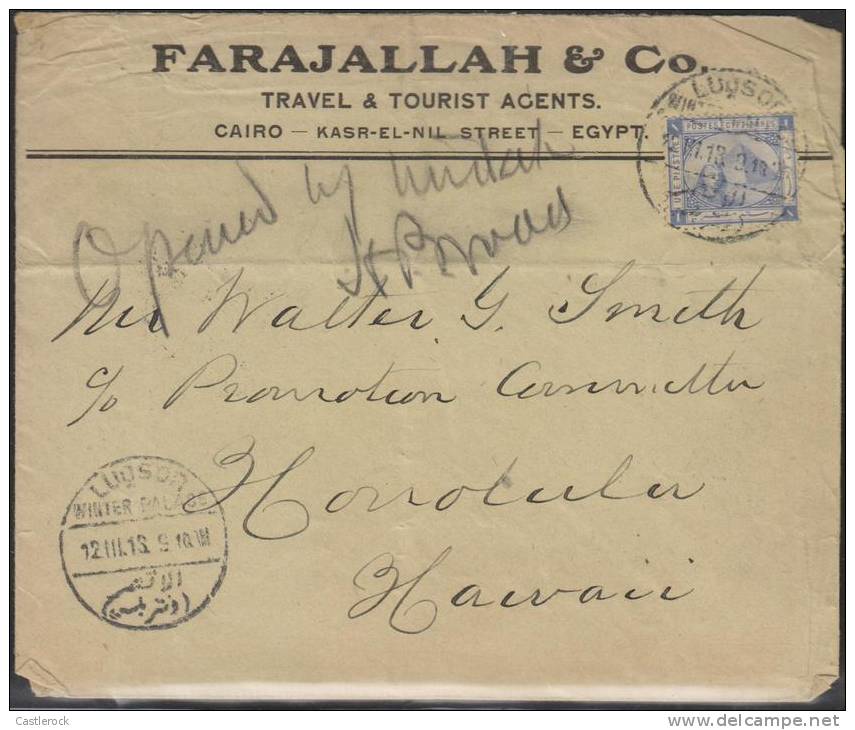 FARAJALLAH & Co.
TRAVEL & TOURIST AGENTS.
CAIRO — KASR-EL-NIL STREET — EGYPT.
LUQSOR
WINTER
UNE PIASTRE
Opened by mistake
Mr Walter G. Smith
c/o Promotion Committee
Honolulu
Hawaii
LUQSOR
WINTER PALACE
12 III.13. 9
الاقصر
(ونتر بلاس)
Castlerock
www.delcampe.net